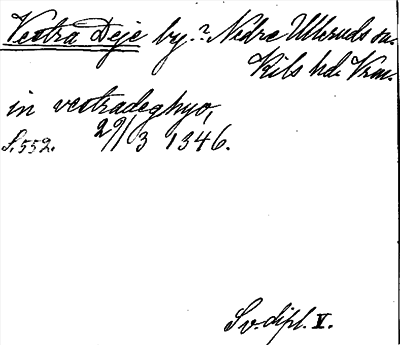 Vestra Deje by.? Nedre Ulleruds sn.
Kils hd. Vrml.
in vestradeghyo,
S. 552. 29/3 1346.
Sv. dipl. V.